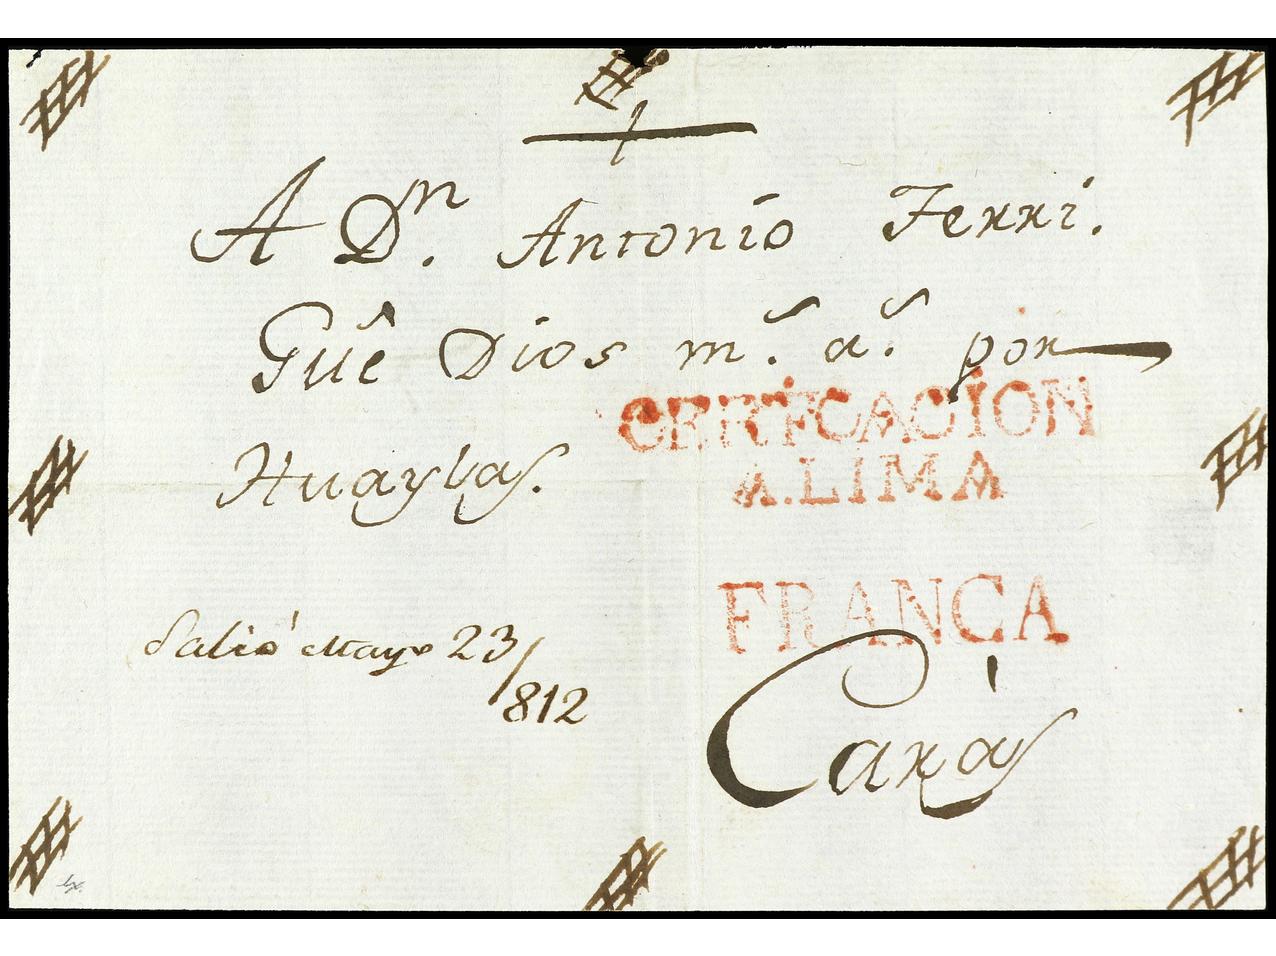 A Dn. Antonio Ferri.
Gue Dios ms. as. por
CERTFCACION
Huaylas.
A.LIMA
FRANCA
Salió Mayo 23/
812
Carás